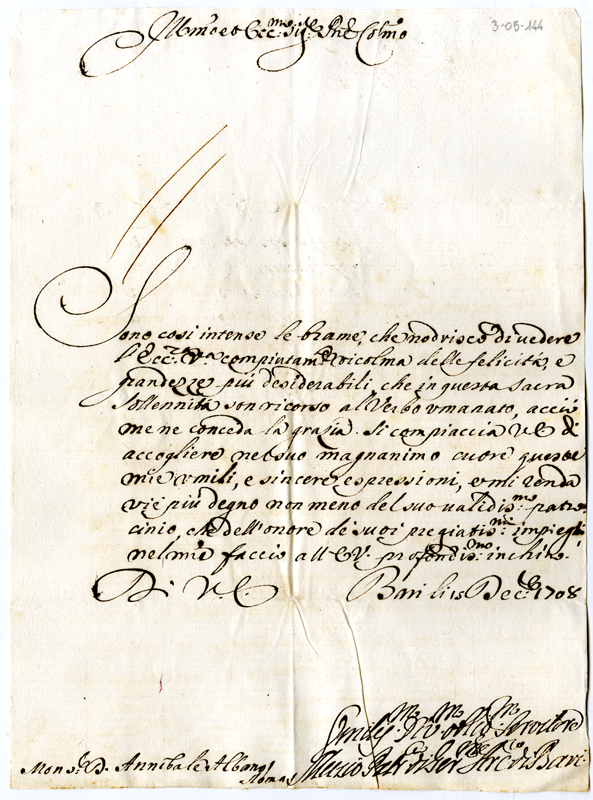 3-05-144
Ill.mo et Ecc.mo Sig.re P.ne Col.mo
Sono così intense le brame, che nodrisco di vedere
l'Ecc.za V.a compiutam.te ricolma delle felicità, e
grandezze più desiderabili, che in questa sacra
sollennità son ricorso al Verbo umanato, acciò
me ne conceda la grazia. Si compiaccia V.E. di
accogliere nel suo magnanimo cuore queste
mie umili, e sincere espressioni, e mi renda
vie più degno non meno del suo validis.mo patro=
cinio, che dell'onore de suoi pregiatis.mi impieghi
nel mio faccio all'E.V. profondis.mo inchino.
Di V.E. Bari li 15 Dec.bre 1708
Mons.r D. Annibale Albani
Roma
Umilis.mo Div.mo Ser.tore
Muzio Arc.o di Bari